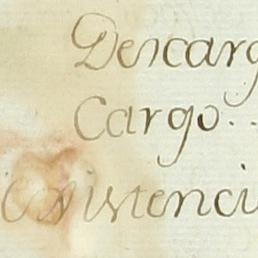 Descarg
Cargo..
Existenci